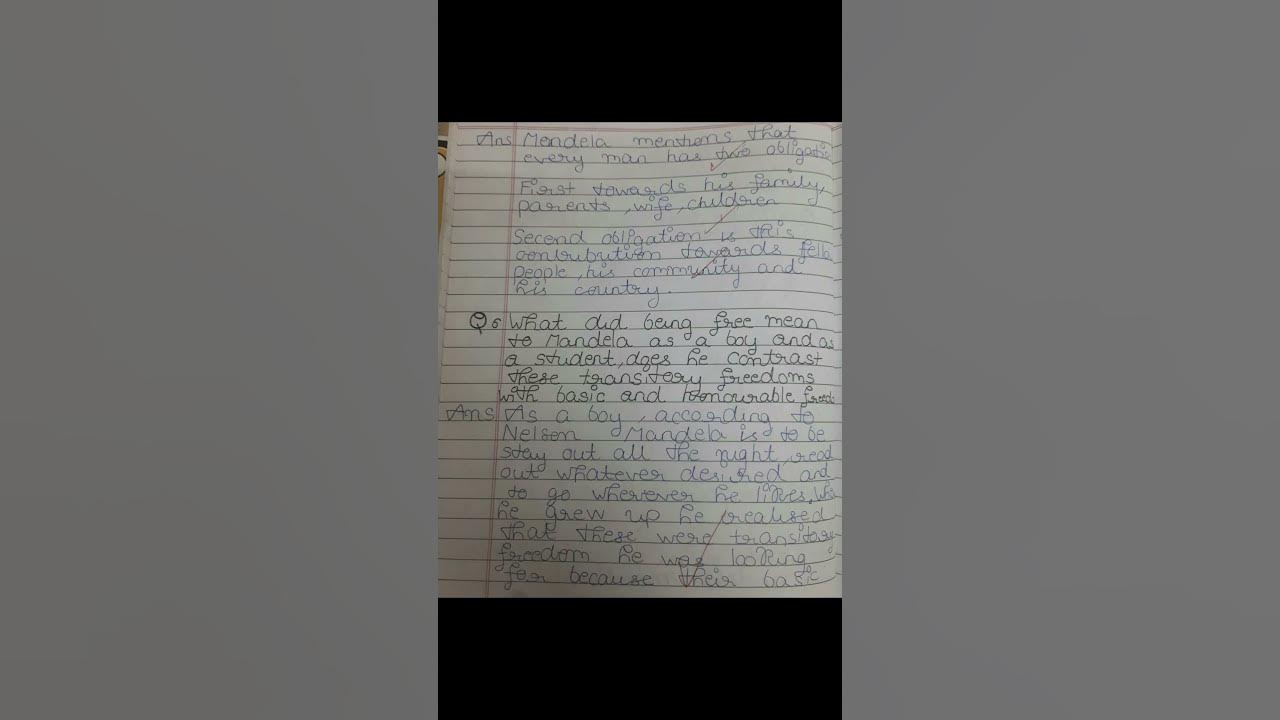 Ans Mendela mentions that
every man has two obligatio
First towards his family,
parents, wife, children
Second obligation is this
contribution towards fello
people, his community and
his country.
Q6 What did being free mean
to Mandela as a boy and as
a student, does he contrast
these transitory freedoms
with basic and honourable freed
Ans As a boy, according to
Nelson Mandela is to be
stay out all the night, read
out whatever desired and
to go wherever he likes. Whe
he grew up he realised
that these were transitory
freedom he was looking
for because their basic